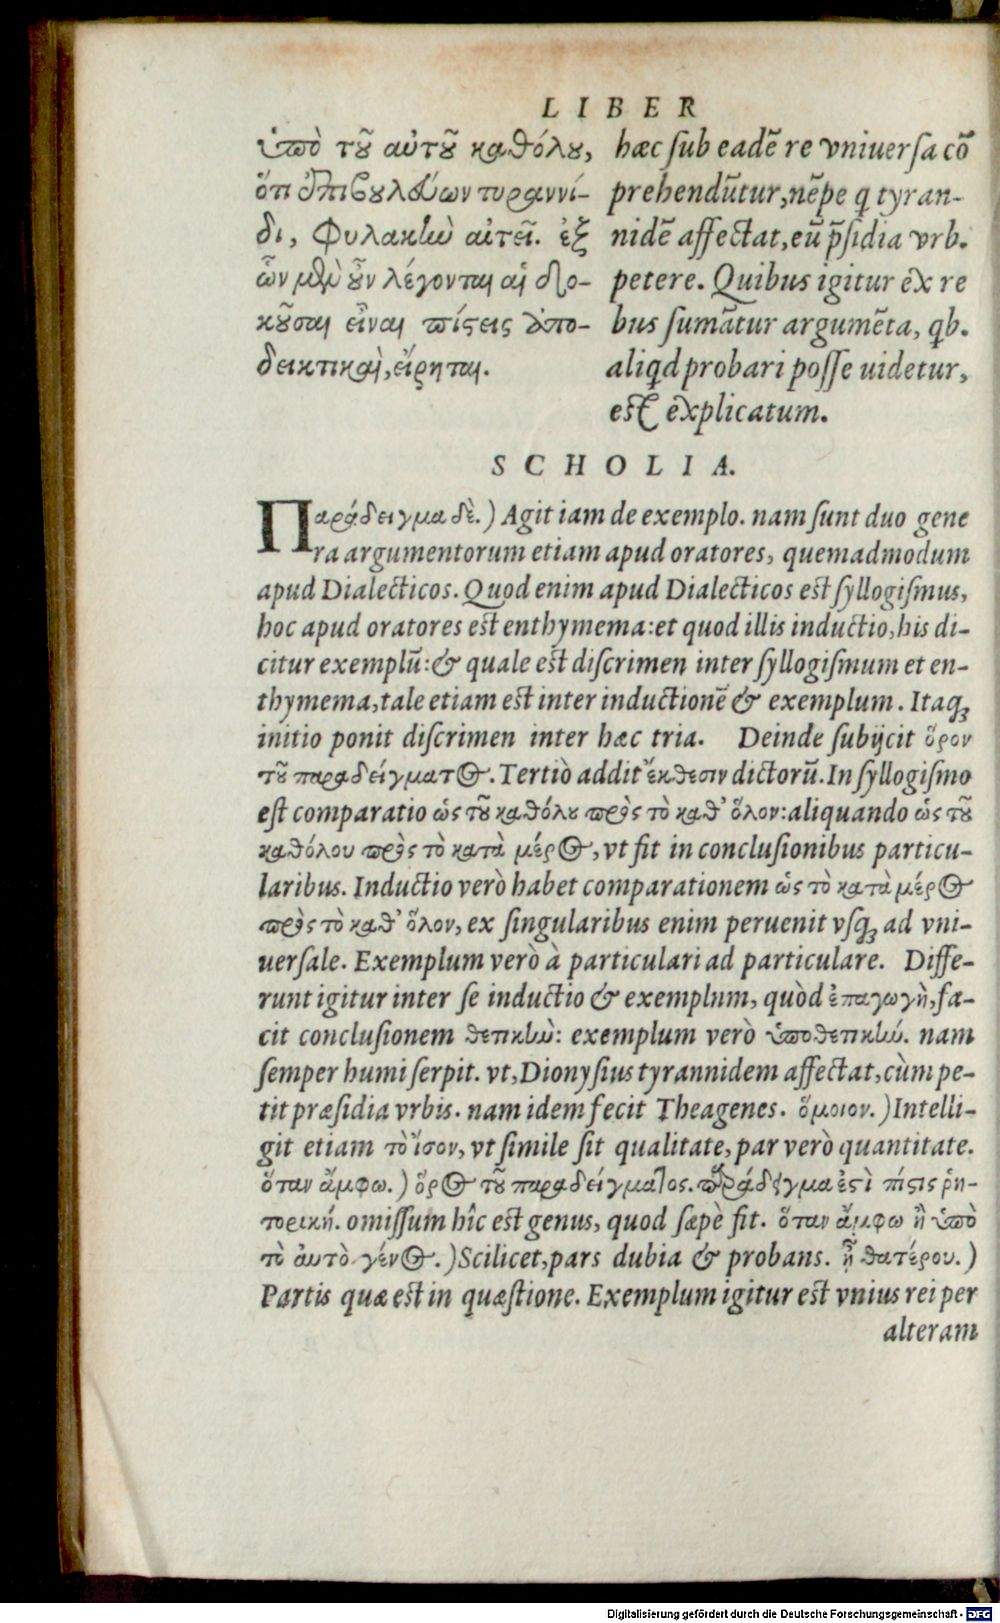 LIBER
ὑπὸ τοῦ αὐτοῦ καθόλου,
ὅτι ἐπιβουλεύων τυραννί-
δι, φυλακὴν αἰτεῖ. ἐξ
ὧν μὲν οὖν λέγονται αἱ δο-
κοῦσαι εἶναι πίστεις ἀπο-
δεικτικαὶ, εἴρηται.
hæc ſub eadē re vniuerſa cō
prehendūtur, nēpe q tyran-
nidē affectat, eū p̄ſidia vrb.
petere. Quibus igitur ex re
bus ſumātur argumēta, qb.
aliqd probari poſſe uidetur,
eſt explicatum.
SCHOLIA.
Παράδειγμα δὲ.) Agit iam de exemplo. nam ſunt duo gene
ra argumentorum etiam apud oratores, quemadmodum
apud Dialecticos. Quod enim apud Dialecticos eſt ſyllogiſmus,
hoc apud oratores eſt enthymema: et quod illis inductio, his di-
citur exemplū: & quale eſt diſcrimen inter ſyllogiſmum et en-
thymema, tale etiam eſt inter inductionē & exemplum. Itaq;
initio ponit diſcrimen inter hæc tria. Deinde ſubijcit ὅρον
τοῦ παραδείγματος. Tertiò addit ἔκθεσιν dictorū. In ſyllogiſmo
eſt comparatio ὡς τοῦ καθόλου πρὸς τὸ καθ' ὅλον: aliquando ὡς τοῦ
καθόλου πρὸς τὸ κατὰ μέρος, vt fit in concluſionibus particu-
laribus. Inductio verò habet comparationem ὡς τὸ κατὰ μέρος
πρὸς τὸ καθ' ὅλον, ex ſingularibus enim peruenit vſq; ad vni-
uerſale. Exemplum verò à particulari ad particulare. Diffe-
runt igitur inter ſe inductio & exemplum, quòd ἐπαγωγὴ, fa-
cit concluſionem θετικὴν: exemplum verò ὑποθετικήν. nam
ſemper humi ſerpit. vt, Dionyſius tyrannidem affectat, cùm pe-
tit præſidia vrbis. nam idem fecit Theagenes. ὅμοιον.) Intelli-
git etiam τὸ ἴσον, vt ſimile ſit qualitate, par verò quantitate.
ὅταν ἄμφω.) ὅρος τοῦ παραδείγματος. παράδειγμα ἐστὶ πίστις ῥη-
τορική. omiſſum hîc eſt genus, quod ſæpè fit. ὅταν ἄμφω ᾖ ὑπὸ
τὸ αὐτὸ γένος.) Scilicet, pars dubia & probans. ἢ θατέρου.)
Partis quæ eſt in quæſtione. Exemplum igitur eſt vnius rei per
alteram
Digitalisierung gefördert durch die Deutsche Forschungsgemeinschaft - DFG